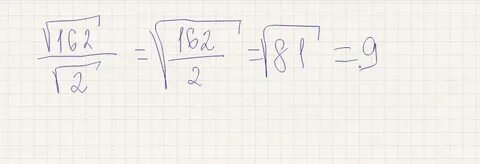 √162/√2 = √(162/2) = √81 = 9